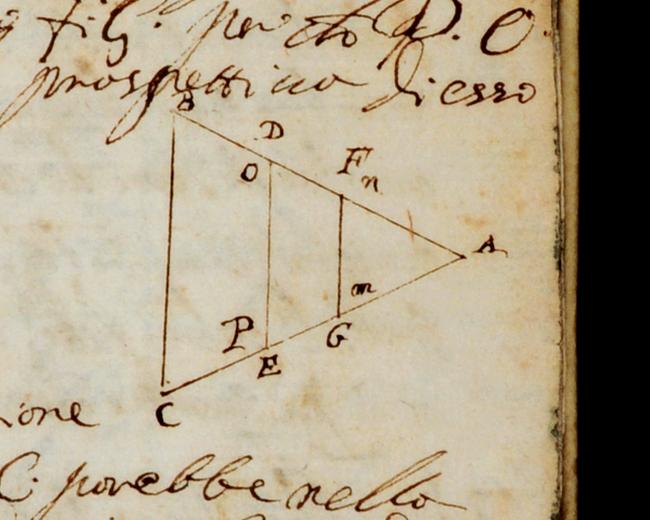 fig. per ciò P. O.
prospettivo di esso
B
D
O
F
n
A
m
P
G
E
C
ione
C. porebbe nello